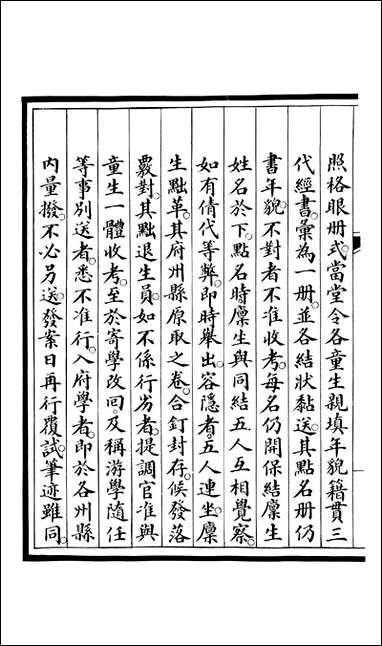 照格眼册式當堂令各童生親填年貌籍貫三
代經書彙為一册並各結狀黏送其點名册仍
書年貌不對者不准收考每名仍開保結廩生
姓名於下點名時廩生與同結五人互相覺察
如有倩代等弊即時舉出容隱者五人連坐廩
生黜革其府州縣原取之卷合釘封存候發落
覈對其黜退生員如不係行劣者提調官准與
童生一體收考至於寄學改回及稱游學隨任
等事別送者悉不准行入府學者即於各州縣
內量撥不必另送發案日再行覆試筆迹雖同